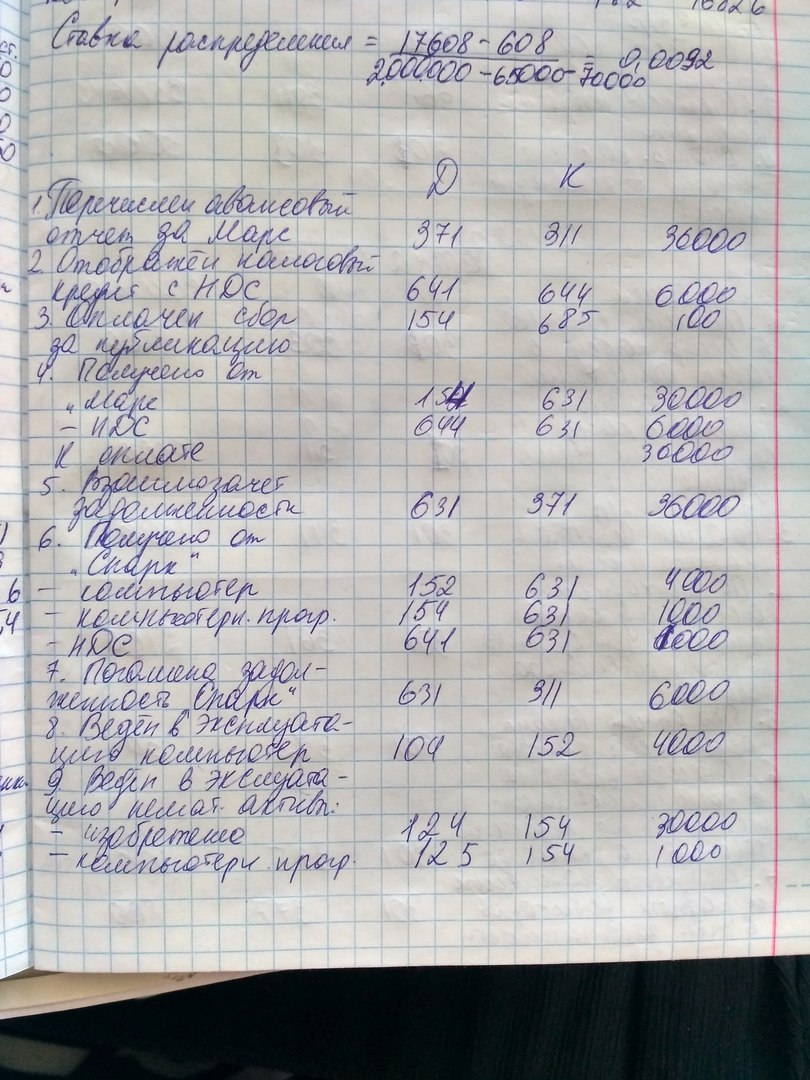 182 16026
Ставка распределения = 17608 - 608
2.000.000 - 65000 - 70000 = 0,0092
Д К
1. Перечислен авансовый
отчет за Марс 371 311 36000
2. Отображен налоговый
кредит с НДС 641 644 6000
3. Оплачен сбор 154 685 100
за публикацию
4. Получено от
"Марс 154 631 30000
- НДС 644 631 6000
К оплате 36000
5. Взаимозачет
задолженности 631 371 36000
6. Получено от
"Спарк"
- компьютер 152 631 4000
- компьютерн. прогр. 154 631 1000
- НДС 641 631 1000
7. Погашена задол-
женность Спарк" 631 311 6000
8. Веден в эксплуата-
цию компьютер 104 152 4000
9 Веден в эксплуата-
цию немат. активы:
- изобретено 124 154 30000
- компьютерн. прогр. 125 154 1000